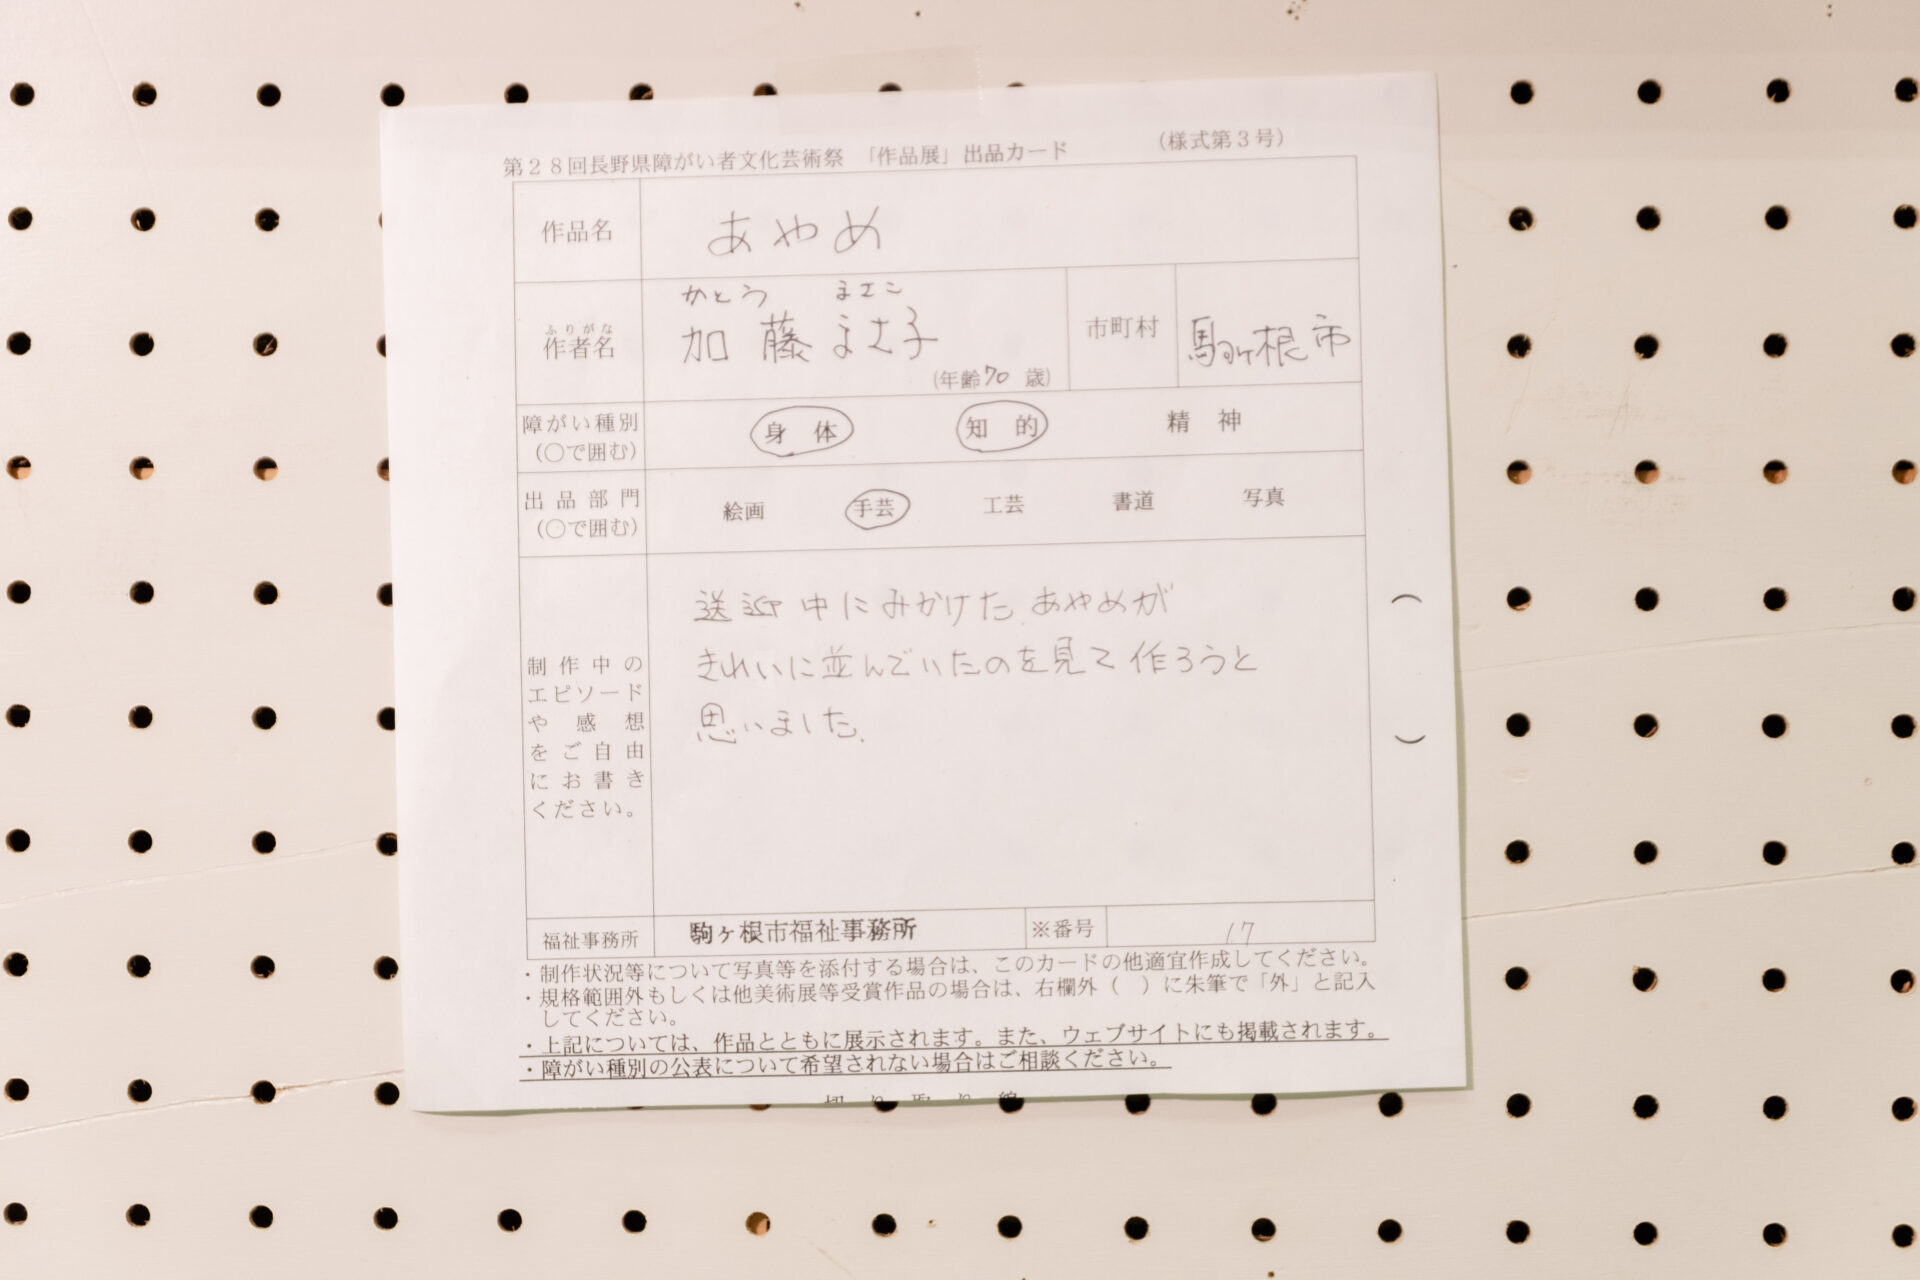 第28回長野県障がい者文化芸術祭 「作品展」出品カード (様式第3号)
作品名 あやめ
かとう まさこ
ふりがな
作者名 加藤まさ子 市町村 駒ヶ根市
(年齢70歳)
障がい種別 身体 知的 精神
(○で囲む)
出品部門 絵画 手芸 工芸 書道 写真
(○で囲む)
送迎中にみかけた、あやめが
きれいに並んでいたのを見て作ろうと
思いました。
制作中の
エピソード
や感想
をご自由
にお書き
ください。
( )
福祉事務所 駒ヶ根市福祉事務所 ※番号 17
・制作状況等について写真等を添付する場合は、このカードの他適宜作成してください。
・規格範囲外もしくは他美術展等受賞作品の場合は、右欄外( )に朱筆で「外」と記入
してください。
・上記については、作品とともに展示されます。また、ウェブサイトにも掲載されます。
・障がい種別の公表について希望されない場合はご相談ください。
切り取り線